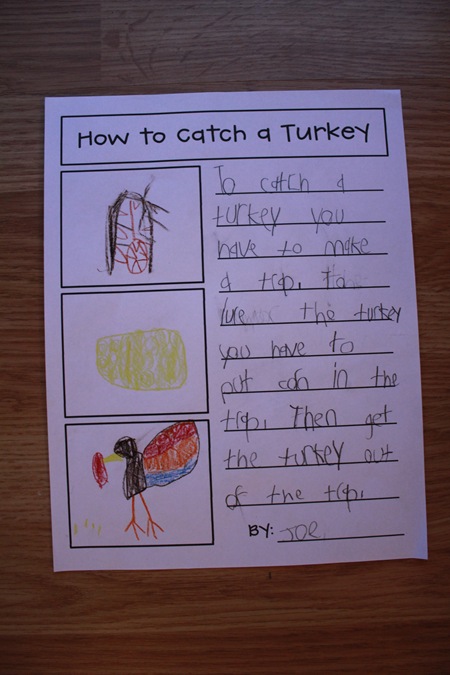 How to Catch a Turkey
To catch a
turkey you
have to make
a trap. To
lure the turkey
you have to
put con in the
trap. Then get
the turkey out
of the trap.
BY: JOE